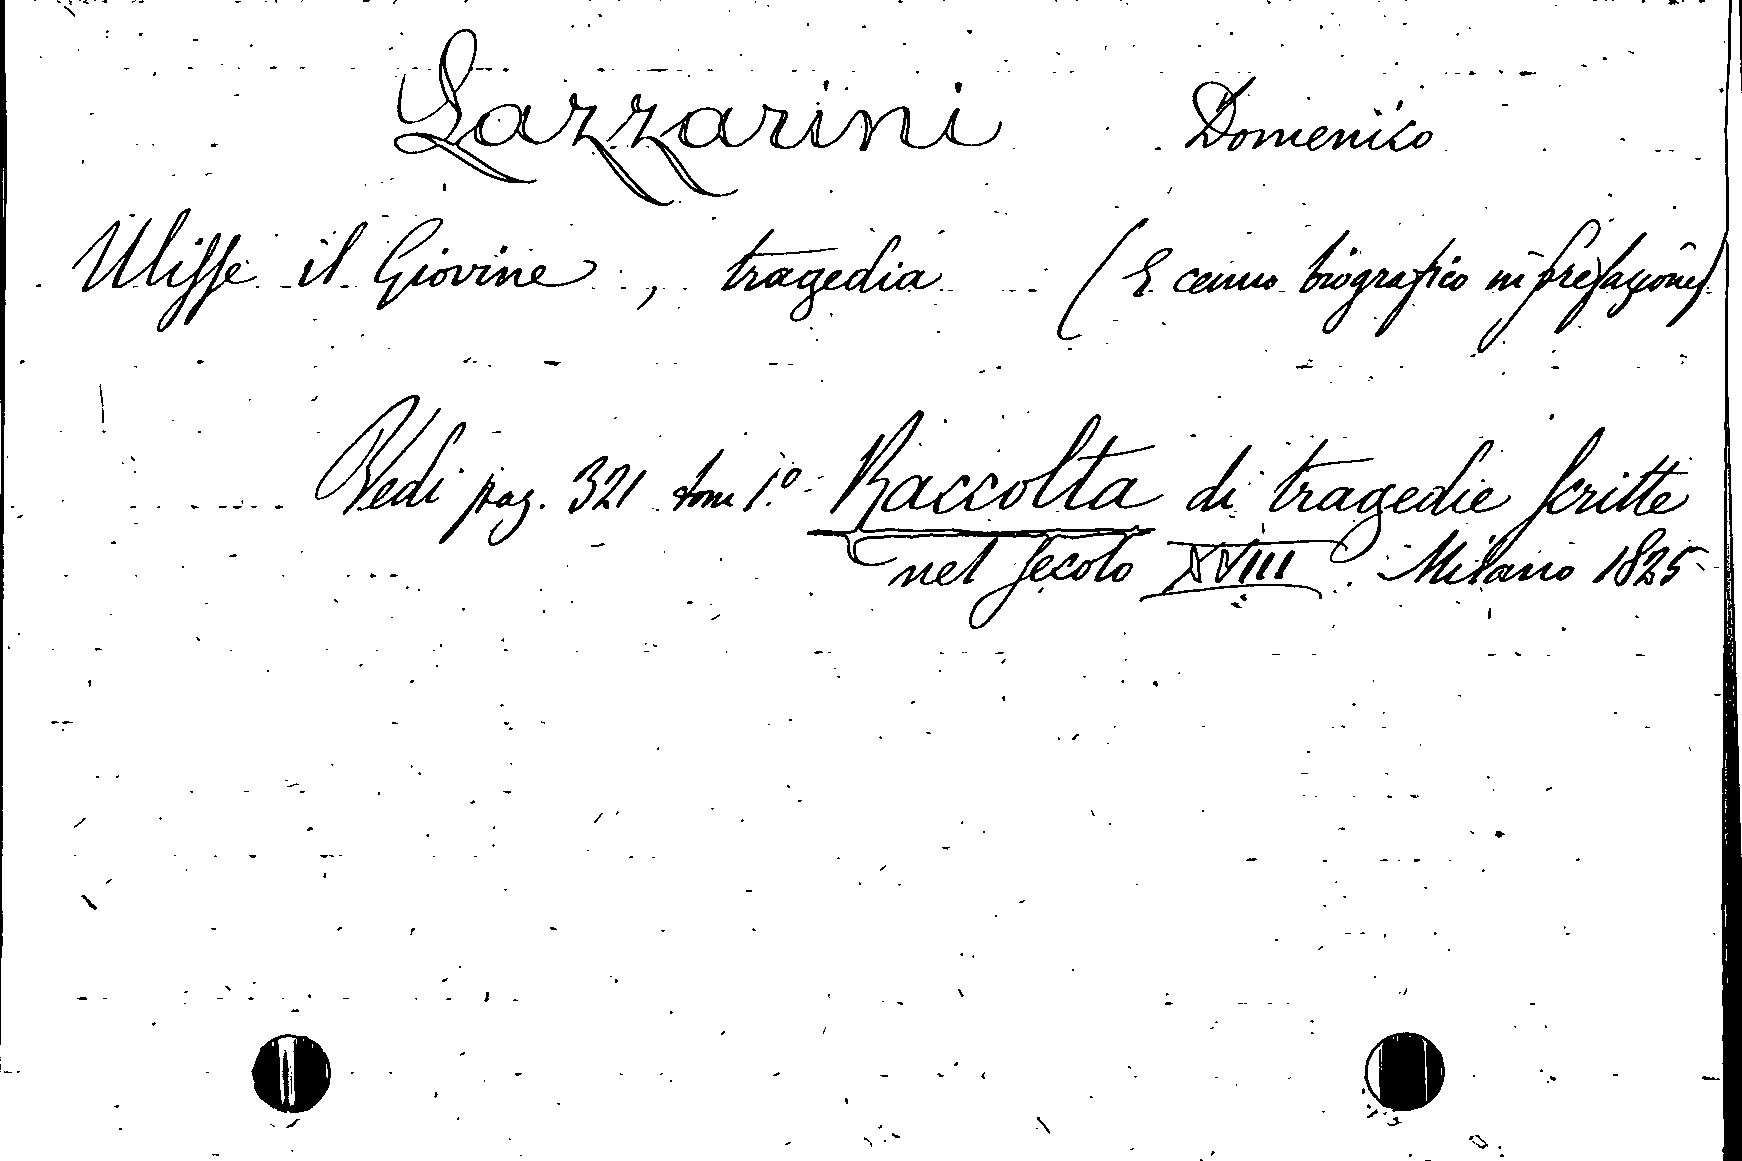 Lazzarini Domenico
Ulisse il Giovine, tragedia (E cenno biografico in prefazione)
Vedi pag. 321 tom 1.º Raccolta di tragedie scritte
nel secolo XVIII. Milano 1825